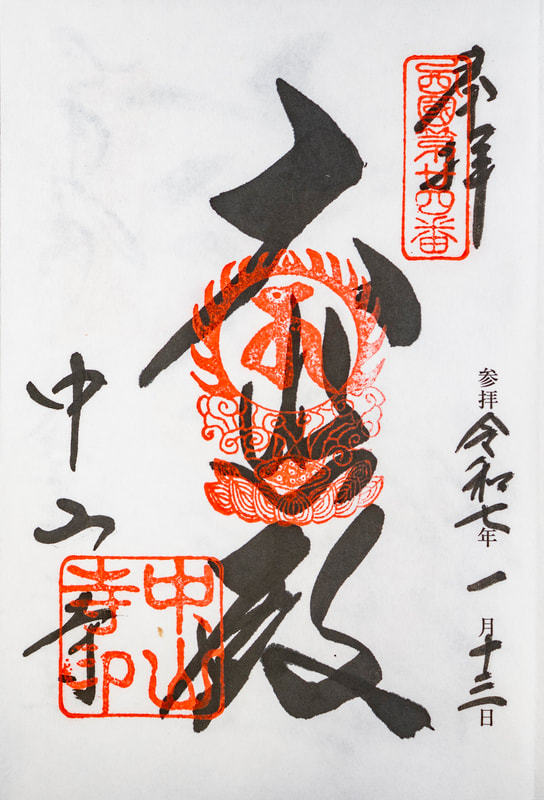 奉拝
西國第廿四番
参拝 令和七年 一月十三日
大悲殿
中山寺
中山寺印